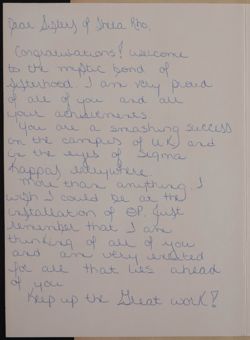 Dear Sisters of Theta Rho,
Congratulations! Welcome
to the mystic bond of
sisterhood. I am very proud
of all of you and all
your achievements.
You are a smashing success
on the campus of UK and
in the eyes of Sigma
Kappas everywhere.
More than anything, I
wish I could be at the
installation of ΘP. Just
remember that I am
thinking of all of you
and am very excited
for all that lies ahead
of you.
Keep up the Great work!